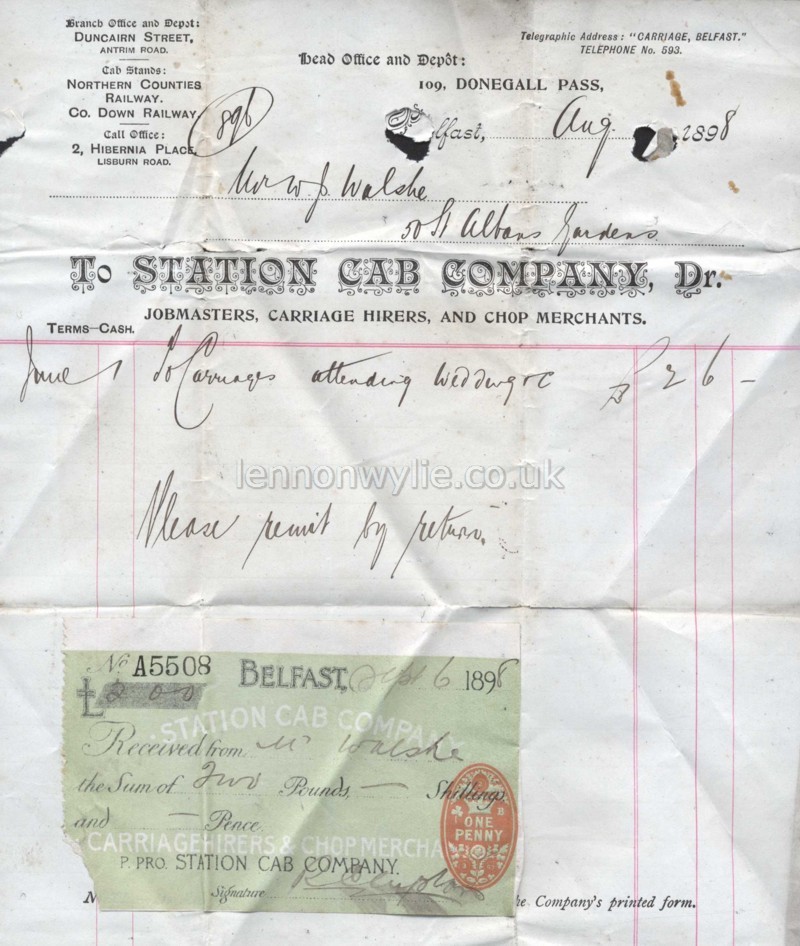 Branch Office and Depôt:
DUNCAIRN STREET,
ANTRIM ROAD.
Cab Stands:
NORTHERN COUNTIES
RAILWAY.
CO. DOWN RAILWAY.
Call Office:
2, HIBERNIA PLACE,
LISBURN ROAD.
Telegraphic Address: "CARRIAGE, BELFAST."
TELEPHONE No. 593.
Head Office and Depôt:
109, DONEGALL PASS,
896
Belfast, Aug 1898
Mr W J Walshe
50 St Albans Gardens
TO STATION CAB COMPANY, Dr.
JOBMASTERS, CARRIAGE HIRERS, AND CHOP MERCHANTS.
TERMS—CASH.
June 1 To Carriages attending Wedding &c £ 2 6 -
lennonwylie.co.uk
Please remit by return.
No A5508 BELFAST, Sept 6 1898
£ 2 0 0
STATION CAB COMPANY
Received from Mr Walshe
the Sum of Two Pounds, — Shillings
and — Pence.
ONE
PENNY
CARRIAGE HIRERS & CHOP MERCHA
P. PRO. STATION CAB COMPANY.
Signature
the Company's printed form.